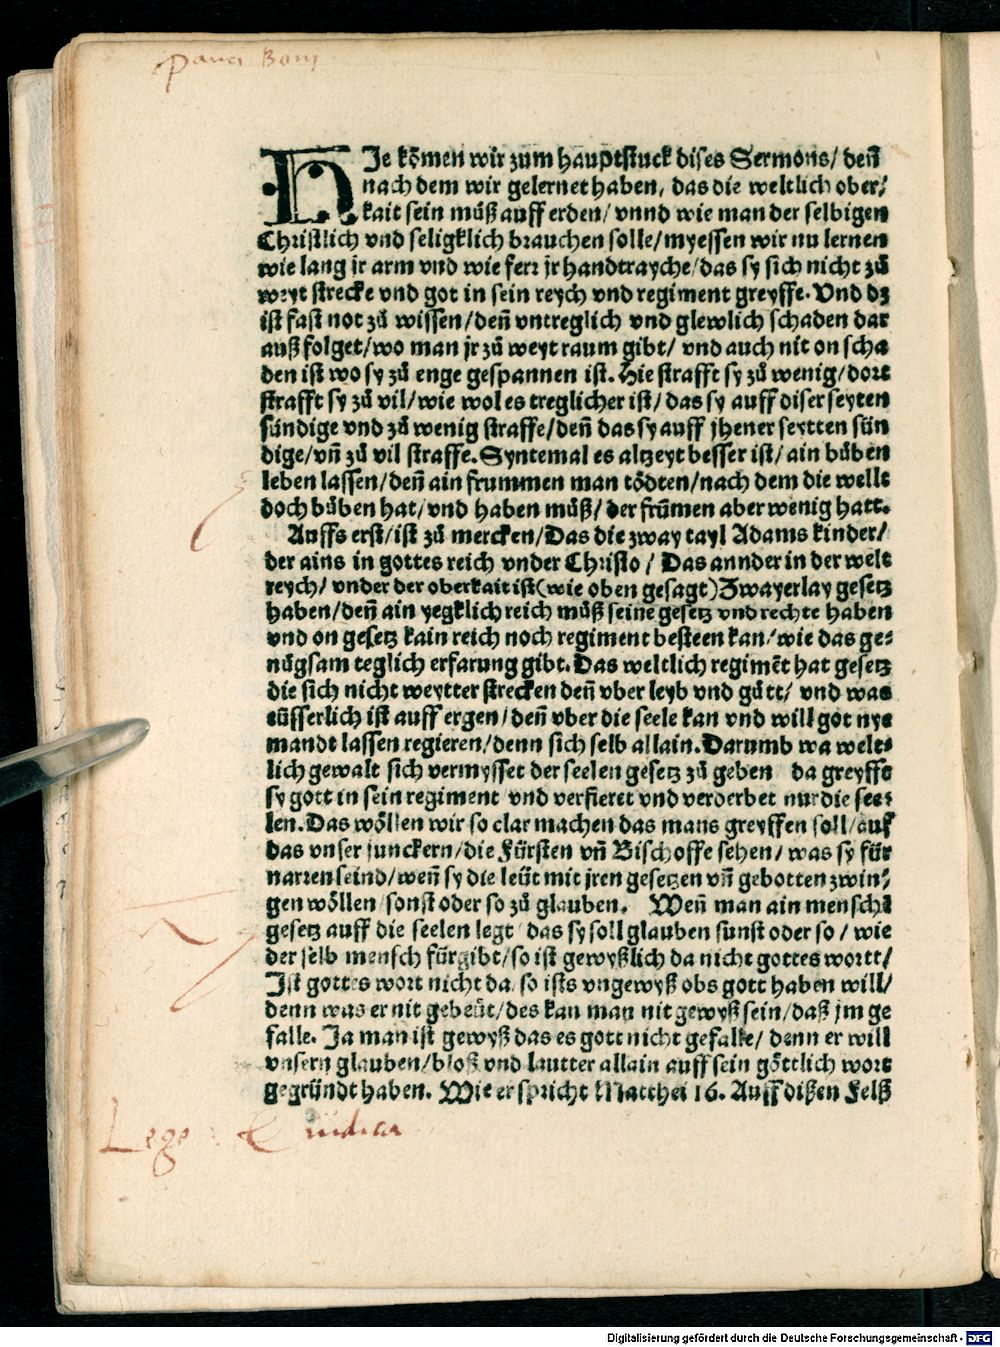 Pauci Boni
HJe kom̃en wir zum hauptstuck dises Sermons/ deñ
nach dem wir gelernet haben, das die weltlich ober/
kait sein můß auff erden/ vnnd wie man der selbigen
Christlich vnd seligklich brauchen solle/ myessen wir nu lernen
wie lang jr arm vnd wie ferr jr handtrayche/ das sy sich nicht zů
weyt strecke vnd got in sein reych vnd regiment greyffe. Vnd dz
ist fast not zů wissen/ deñ vntreglich vnd glewlich schaden dar
auß folget/ wo man jr zů weyt raum gibt/ vnd auch nit on scha
den ist wo sy zů enge gespannen ist. Hie strafft sy zů wenig/ dort
strafft sy zů vil/ wie wol es treglicher ist/ das sy auff diser seyten
sündige vnd zů wenig straffe/ deñ das sy auff jhener seytten sün
dige/ vñ zů vil straffe. Syntemal es altzeyt besser ist/ ain bůben
leben lassen/ deñ ain frummen man tödten/ nach dem die wellt
doch bůben hat/ vnd haben můß/ der frūmen aber wenig hatt.
Auffs erst/ ist zů mercken/ Das die zway tayl Adams kinder/
der ains in gottes reich vnder Christo/ Das annder in der welt
reych/ vnder der oberkait ist (wie oben gesagt) Zwayerlay gesetz
haben/ deñ ain yegklich reich můß seine gesetz vnd rechte haben
vnd on gesetz kain reich noch regiment besteen kan/ wie das ge⸗
nůgsam teglich erfarung gibt. Das weltlich regimēt hat gesetz
die sich nicht weytter strecken deñ vber leyb vnd gůtt/ vnd was
eüsserlich ist auff ergen/ deñ vber die seele kan vnd will got nye
mandt lassen regieren/ denn sich selb allain. Darumb wa welt⸗
lich gewalt sich vermysset der seelen gesetz zů geben da greyffe
sy gott in sein regiment vnd verfieret vnd verderbet nur die see⸗
len. Das wöllen wir so clar machen das mans greyffen soll/ auf
das vnser junckern/ die Fürsten vñ Bischoffe sehen/ was sy für
narren seind/ weñ sy die leüt mit jren gesetzen vñ gebotten zwin/
gen wöllen sonst oder so zů glauben. Weñ man ain menschl
gesetz auff die seelen legt das sy soll glauben sunst oder so/ wie
der selb mensch fürgibt/ so ist gewyßlich da nicht gottes wortt/
Ist gottes wort nicht da so ists vngewyß obs gott haben will/
denn was er nit gebeüt/ des kan man nit gewyß sein/ daß jm ge
falle. Ja man ist gewyß das es gott nicht gefalle/ denn er will
vnsern glauben/ bloß vnd lautter allain auff sein göttlich wort
gegründt haben. Wie er spricht Matthei 16. Auff dißen Felß
Lege
Digitalisierung gefördert durch die Deutsche Forschungsgemeinschaft - DFG